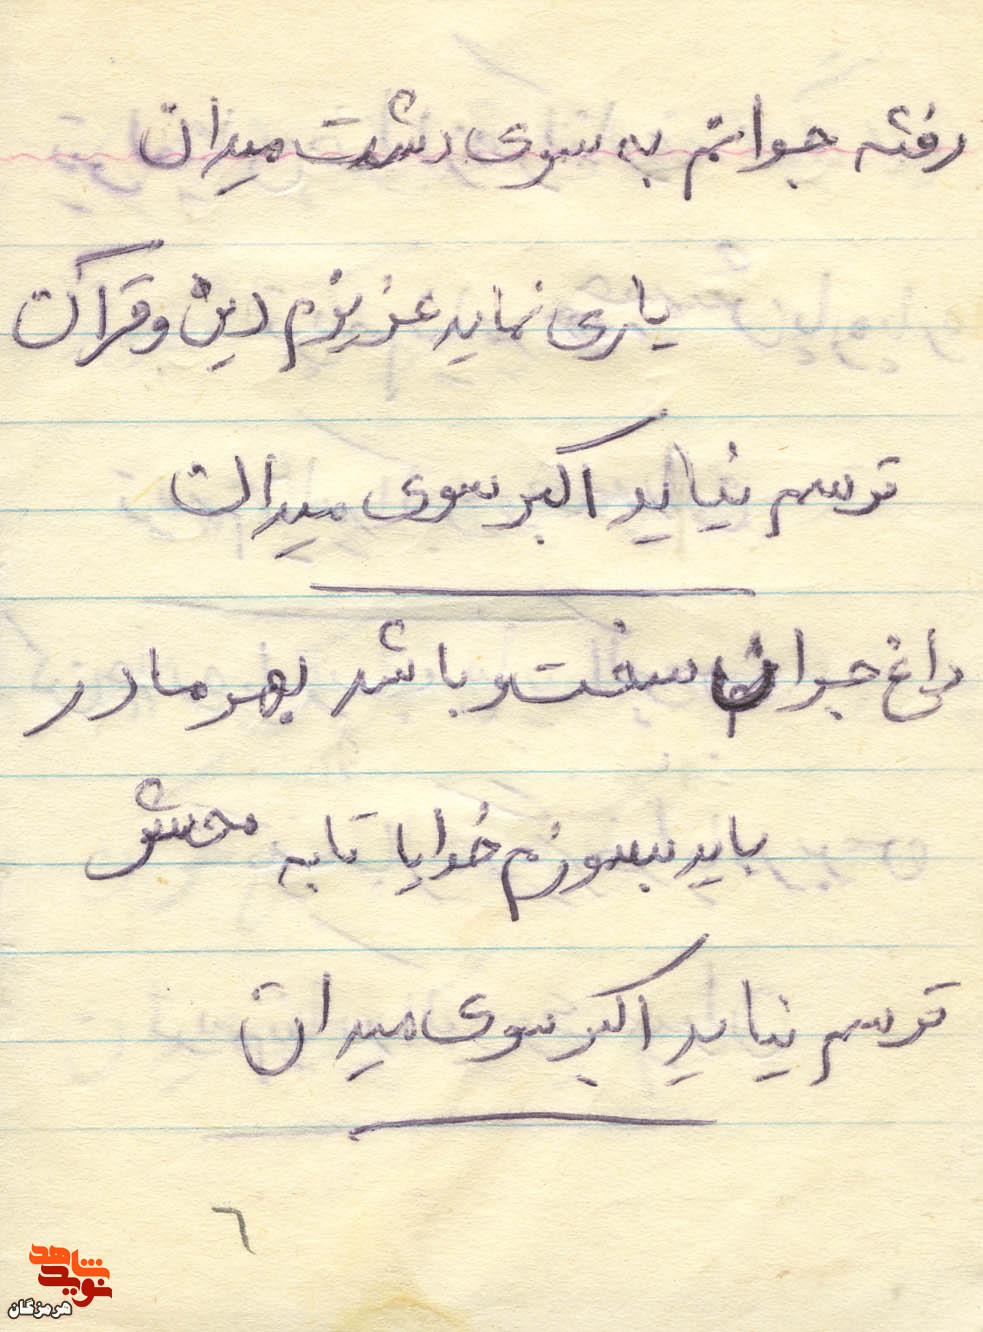 رفته جوانم به سوی دشت میدان
یاری نماید عزیزم دین و قرآن
ترسم نیاید اکبر سوی میدان
داغ جوان سخت و باشد بهر مادر
باید بسوزم خدایا تا به محشر
ترسم نیاید اکبر سوی میدان
٦
نوید شاهد
هرمزگان